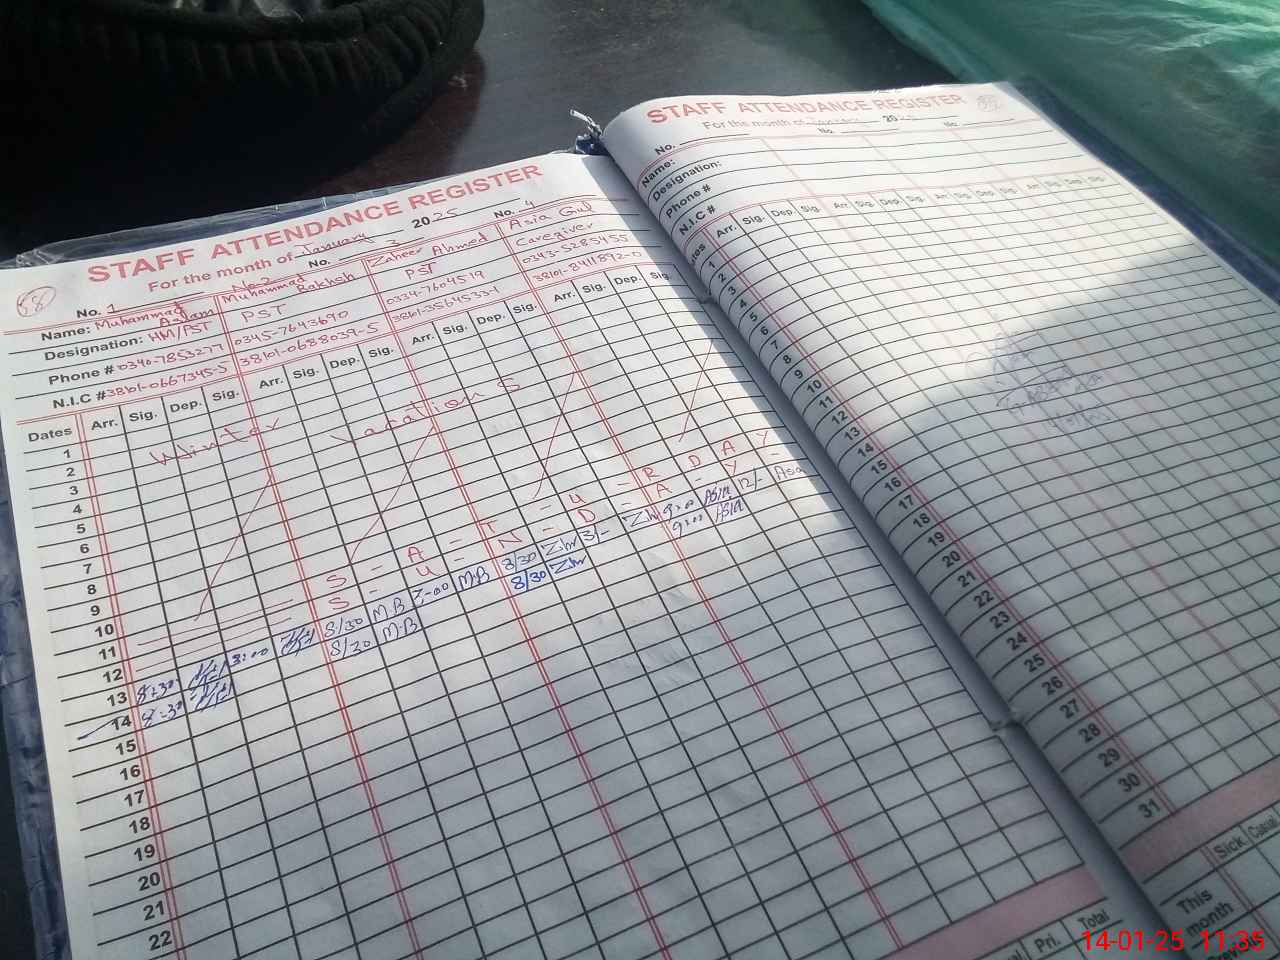 STAFF ATTENDANCE REGISTER
For the month of January 2025
58
No. 1 No. 2 No. 3 No. 4
Name: Muhammad Aslam Muhammad Bakhsh Zaheer Ahmed Asia Gul
Designation: HM/PST PST PST Caregiver
Phone # 0340-7853277 0345-7643690 0334-7604519 0343-5285455
N.I.C # 38101-0667345-5 38101-0688039-5 38101-3564533-1 38101-8411892-0
Dates Arr. Sig. Dep. Sig. Arr. Sig. Dep. Sig. Arr. Sig. Dep. Sig. Arr. Sig. Dep. Sig.
1
2 Winter Vacations
3
4
5
6
7
8
9
10
11 S - A - T - U - R D A Y
12 S - U - N - D - A - Y -
13 8:30 3:00 8/30 M.B 2-00 M.B 8/30 Zhr 3/- Zhr 9:00 ASIA 12/- Asia
14 8:30 8/30 M.B 8/30 Zhr 9:00 ASIA
15
16
17
18
19
20
21
22
Pri. Total
STAFF ATTENDANCE REGISTER
For the month of January 20
No. No. No.
Name:
Designation:
Phone #
N.I.C #
Arr. Sig. Dep. Sig. Arr. Sig. Dep. Sig. Arr. Sig. Dep. Sig. Arr. Sig. Dep. Sig.
1
2
3
4
5
6
7
8
9
10
11
12
13
14
15
16
17
18
19
20
21
22
23
24
25
26
27
28
29
30
31
Sick Casual
This month
14-01-25 11:35